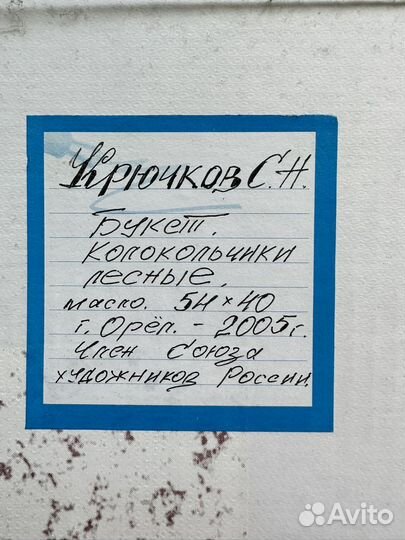 Крючков С.Н.
Букет.
Колокольчики
лесные.
масло. 54×40
г. Орёл. - 2005г.
Член Союза
художников России.
Avito